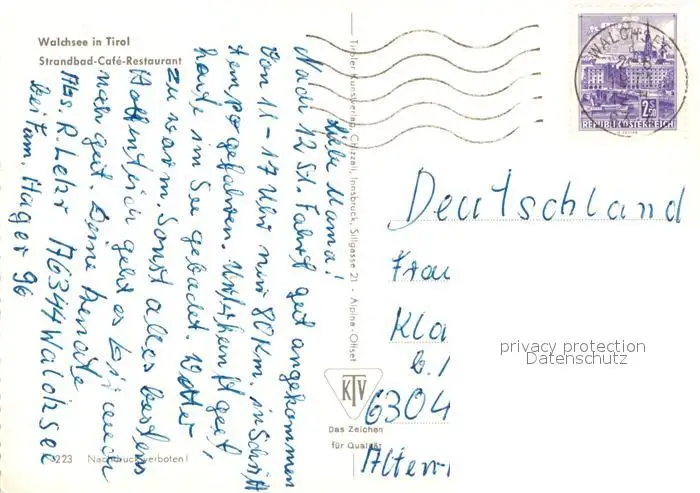 Walchsee in Tirol
Strandbad-Café-Restaurant
Liebe Mama!
Nach 12 St. Fahrt gut angekommen
Von 11-17 Uhr nur 80 Km. in Schritt
tempo gefahren. Unterkunft gut,
heute in See gebadet. Wetter
zu warm. Sonst alles bestens
Hoffentlich geht es Dir auch
noch gut. Deine Renate
Abs. R. A6344 Walchsee
bei Fam. Hager 96
223 Nachdruck verboten!
Tiroler Kunstverlag Chizzali, Innsbruck, Sillgasse 21 - Alpina-Offset
KTV
Das Zeichen
für Qualität
WALCHSEE
2S50
REPUBLIK ÖSTERREICH
Deutschland
Frau
Kla
6304
privacy protection
Datenschutz